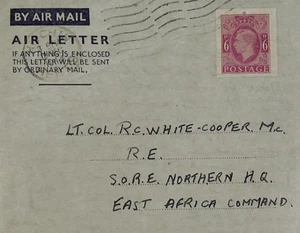 BY AIR MAIL
AIR LETTER
IF ANYTHING IS ENCLOSED
THIS LETTER WILL BE SENT
BY ORDINARY MAIL.
6 6
POSTAGE
LT. COL. R.C. WHITE-COOPER, M.C.
R.E.
S.O.R.E. NORTHERN H.Q.
EAST AFRICA COMMAND.